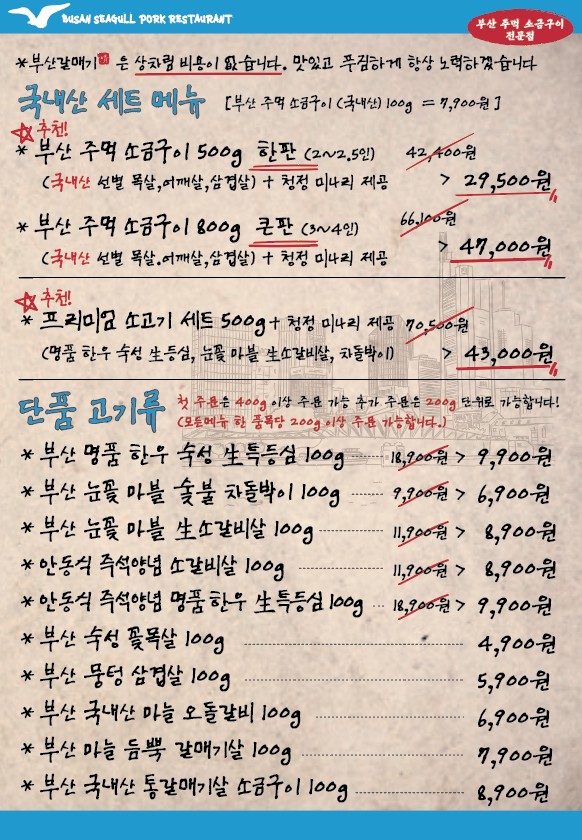 BUSAN SEAGULL PORK RESTAURANT
부산 주먹 소금구이
전문점
*부산갈매기 은 상차림 비용이 없습니다. 맛있고 푸짐하게 항상 노력하겠습니다
국내산 세트 메뉴 [부산 주먹 소금구이 (국내산) 100g = 7,900원]
추천!
* 부산 주먹 소금구이 500g 한판 (2~2.5인) 42,400원
(국내산 선별 목살,어깨살,삼겹살) + 청정 미나리 제공 > 29,500원
* 부산 주먹 소금구이 800g 큰판 (3~4인) 66,100원
(국내산 선별 목살.어깨살,삼겹살) + 청정 미나리 제공 > 47,000원
추천!
* 프리미엄 소고기 세트 500g + 청정 미나리 제공 70,500원
(명품 한우 숙성 生등심, 눈꽃 마블 生소갈비살, 차돌박이) > 43,000원
단품 고기류 첫 주문은 400g 이상 주문 가능 추가 주문은 200g 단위로 가능합니다!
(모든메뉴 한 품목당 200g 이상 주문 가능합니다.)
* 부산 명품 한우 숙성 生특등심 100g 18,900원 > 9,900원
* 부산 눈꽃 마블 숯불 차돌박이 100g 9,900원 > 6,900원
* 부산 눈꽃 마블 生소갈비살 100g 11,900원 > 8,900원
* 안동식 즉석양념 소갈비살 100g 11,900원 > 8,900원
* 안동식 즉석양념 명품한우 生특등심 100g 18,900원 > 9,900원
* 부산 숙성 꽃목살 100g 4,900원
* 부산 뭉텅 삼겹살 100g 5,900원
* 부산 국내산 마늘 오돌갈비 100g 6,900원
* 부산 마늘 듬뿍 갈매기살 100g 7,900원
* 부산 국내산 통갈매기살 소금구이 100g 8,900원